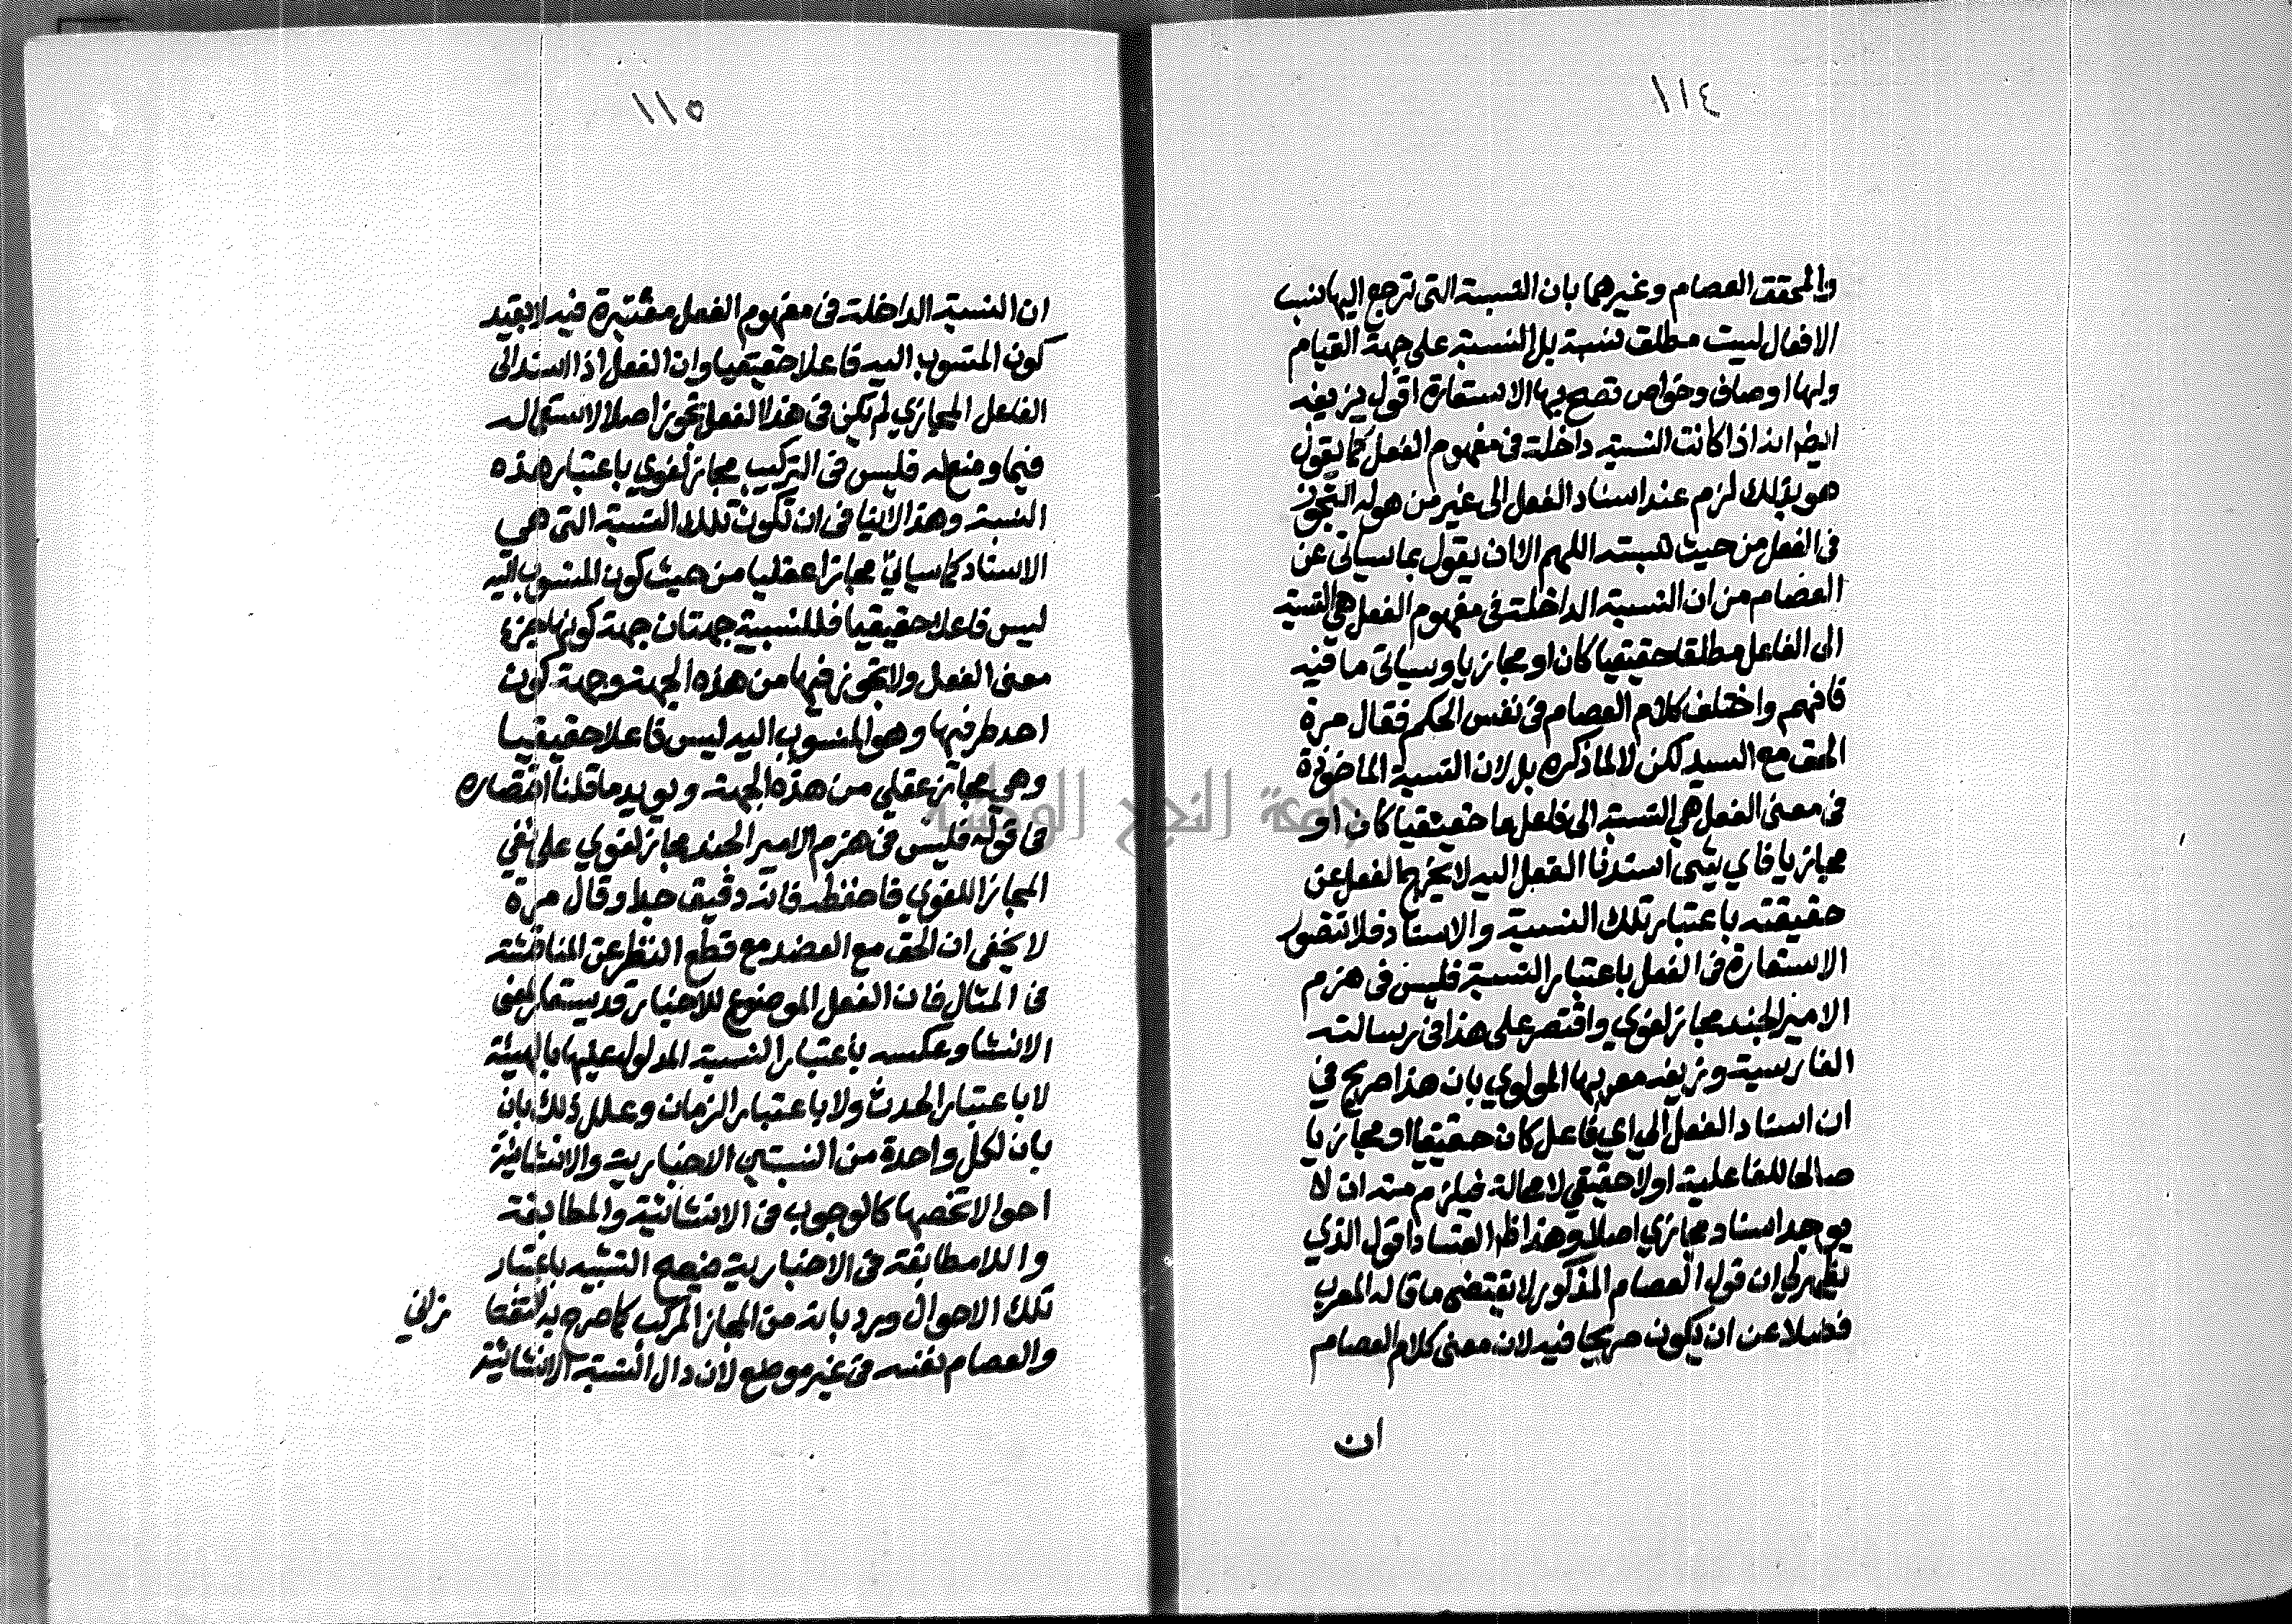 ١١٤
والمحقق العصام وغيرهما بان النسبة التى ترجع اليها نسب
الافعال ليست مطلق نسبة بل النسبة على جهة القيام
ولها اوصاف وخواص تصح بها الاستعارة اقول يزيفه
ايضا انه اذا كانت النسبة داخلة فى مفهوم الفعل كما يقول
هو بذلك لزم عند اسناد الفعل الى غير من هو له التجوز
فى الفعل من حيث نسبته اللهم الا ان يقول بما سياتى عن
العصام من ان النسبة الداخلة فى مفهوم الفعل هى النسبة
الى الفاعل مطلقا حقيقيا كان او مجازيا وسياتى ما فيه
فافهم واختلف كلام العصام فى نفس الحكم فقال مرة
الحق مع السيد لكن لا لما ذكره بل لان النسبة الماخوذة
فى معنى الفعل هى النسبة الى فاعل ما حقيقيا كان او
مجازيا فاي شى اسندنا الفعل اليه لا يخرج الفعل عن
حقيقته باعتبار تلك النسبة والاسناد فلا تتصور
الاستعارة فى الفعل باعتبار النسبة فليس فى هزم
الامير الجند مجاز لغوي واقتصر على هذا فى رسالته
الفارسية وزيفه معربها المولوي بان هذا صريح في
ان اسناد الفعل الى اي فاعل كان حقيقيا او مجازيا
صالحا للفاعلية اولا حقيقي لا محالة فيلزم منه ان لا
يوجد اسناد مجازي اصلا وهذا ظ الفساد اقول الذي
يظهر لي ان قول العصام المذكور لا يقتضى ما قاله المعرب
فضلا عن ان يكون صريحا فيه لان معنى كلام العصام
ان
١١٥
ان النسبة الداخلة فى مفهوم الفعل معتبرة فيه لا بقيد
كون المنسوب اليه فاعلا حقيقيا وان الفعل اذا اسند الى
الفاعل المجازي لم يكن فى هذا الفعل تجوز اصلا لاستعماله
فيما وضع له فليس فى التركيب مجاز لغوي باعتبار هذه
النسبة وهذا لا ينافى ان تكون تلك النسبة التى هي
الاسناد كما سياتي مجازا عقليا من حيث كون المنسوب اليه
ليس فاعلا حقيقيا فللنسبة جهتان جهة كونها جزء
معنى الفعل ولا تجوز فيها من هذه الجهة وجهة كون
احد طرفيها وهو المنسوب اليه ليس فاعلا حقيقيا
وهي مجاز عقلي من هذه الجهة ويويد ما قلنا اقتصاره
فى قوله فليس فى هزم الامير الجند مجاز لغوي على نفي
المجاز اللغوي فاحفظه فانه دقيق جدا وقال مرة
لا يخفى ان الحق مع العضد مع قطع النظر عن المناقشة
فى المثال فان الفعل الموضوع للاخبار قد يستعار لمعنى
الانشا وعكسه باعتبار النسبة المدلول عليها بالهيئة
لا باعتبار الحدث ولا باعتبار الزمان وعلل ذلك بان
بان لكل واحدة من النسبتين الاخبارية والانشائية
احوالا تخصها كالوجوب فى الانشائية والمطابقة
واللامطابقة فى الاخبارية فيصح التشبيه باعتبار
تلك الاحوال ويرد بانه من المجاز المركب كما صرح به التفتا زاني
والعصام نفسه فى غير موضع لان دال النسبة الانشائية